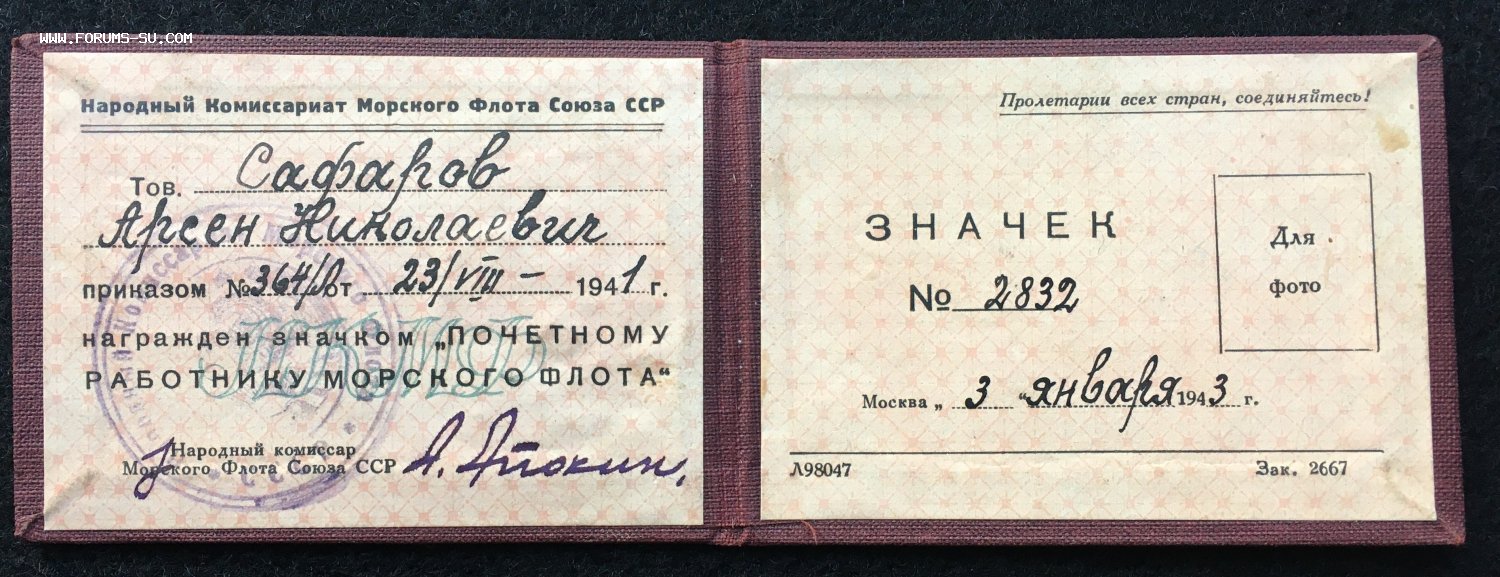 www.forums-su.com
Народный Комиссариат Морского Флота Союза ССР
Тов. Сафаров
Арсен Николаевич
приказом № 364/Л от 23/VIII – 1941 г.
награжден значком „ПОЧЕТНОМУ
РАБОТНИКУ МОРСКОГО ФЛОТА“
НКМФ
Народный комиссар
Морского Флота Союза ССР
Пролетарии всех стран, соединяйтесь!
ЗНАЧЕК
№ 2832
Для
фото
Москва „ 3 “ января 1943 г.
Л98047
Зак. 2667